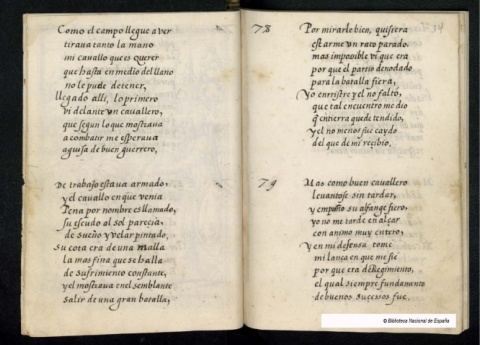 Como el campo llegue a ver
tiraua tanto la mano
mi cauallo que es querer
que hasta en medio del llano
no le pude detener,
llegado alli, lo primero
vi delante vn cauallero,
que segun lo que mostraua
a combatir me esperaua
a guisa de buen guerrero.
De trabajo estaua armado,
y el cauallo en que venia
Pena por nombre es llamado,
su escudo al sol parecia
de sueño y velar pintado,
su cota era de una malla
la mas fina que se halla
de sufrimiento constante,
y el mostraua en el semblante
salir de una gran batalla,
78
Por mirarle bien, quisiera
estarme un rato parado.
mas imposible vi que era
por que el partio denodado
para la batalla fiera,
Yo enrristre y el no faltó,
que tal encuentro me dio
q̃ en tierra quede tendido,
y el no menos fue caydo
del que de mi recibio.
79
Mas como buen cauallero
leuantose sin tardar,
y empuño su alfange fiero,
yo no me tarde en alçar
con animo muy entero,
Y en mi defensa tome
mi lança en que me fie
por que era de Regimiento,
el qual siempre fundamento
de buenos sucessos fue.
© Biblioteca Nacional de España